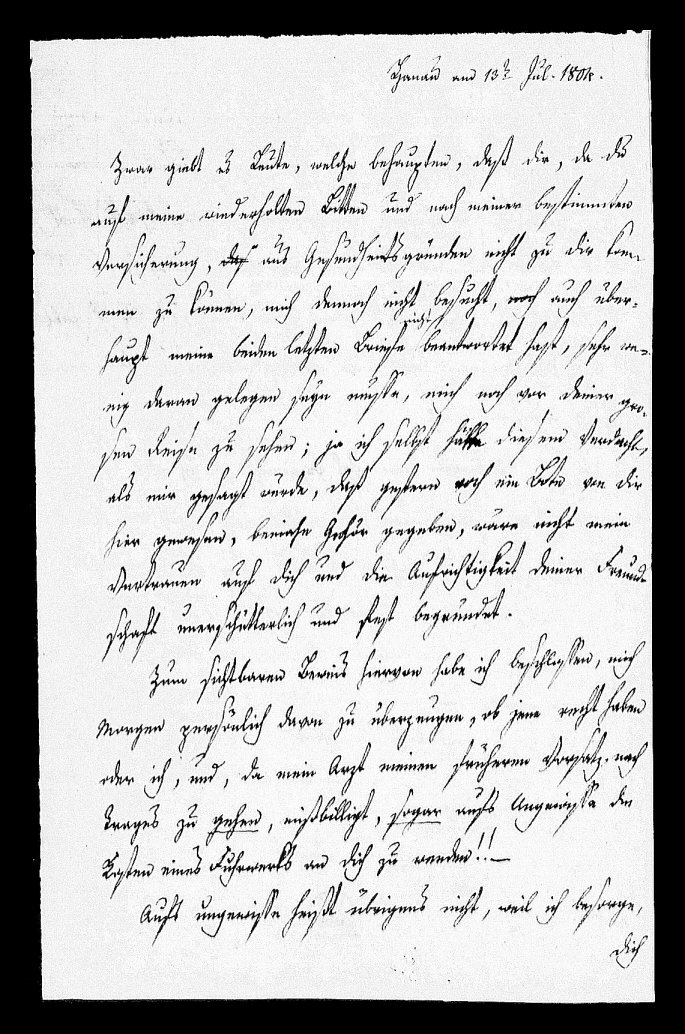 Hanau am 13n Jul. 1804.
Zwar giebt es Leute, welche behaupten, daß dir, da du
auf meine wiederholten Bitten und nach meiner bestimmten
Versicherung, daß aus Gesundheitsgründen nicht zu dir kom-
men zu können, mich dennoch nicht besucht, noch auch über-
haupt meine beiden letzten Briefe nicht beantwortet hast, sehr we-
nig daran gelegen seyn müsse, mich noch vor deiner gro-
sen Reise zu sehen; ja ich selbst hätte diesem Verdacht,
als mir gesagt wurde, daß gestern noch ein Bote von dir
hier gewesen, beinahe Gehör gegeben, wäre nicht mein
Vertrauen auf dich und die Aufrichtigkeit deiner Freund-
schaft unerschütterlich und fest begründet.
Zum sichtbaren Beweis hiervon habe ich beschlossen, mich
Morgen persönlich davon zu überzeugen, ob jene recht haben
oder ich, und, da mein Arzt meinen früheren Vorsatz, nach
Trages zu gehen, mißbilligt, sogar aufs Ungewisse die
Kosten eines Fuhrwerks an dich zu wenden!! —
Aufs ungewisse heißt übrigens nicht, weil ich besorge,
dich